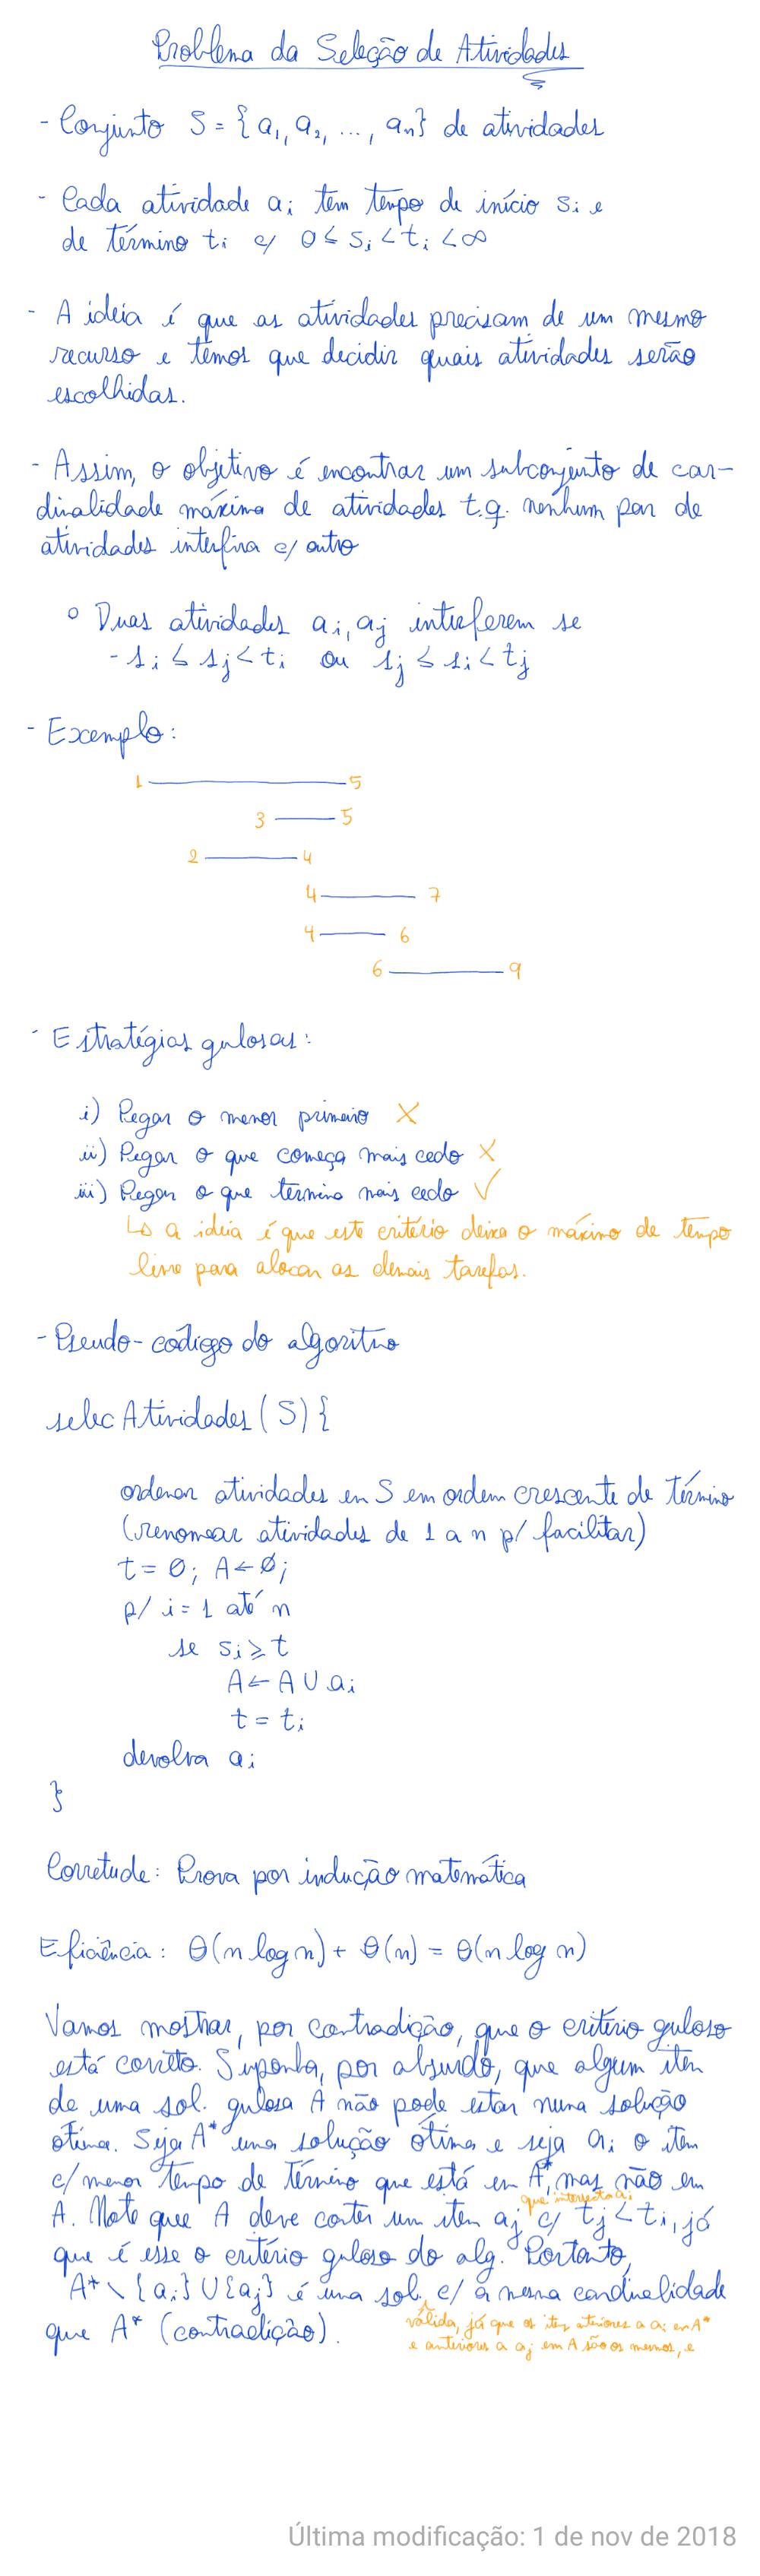 Problema da Seleção de Atividades
- Conjunto S = {a₁, a₂, ..., aₙ} de atividades
- Cada atividade aᵢ tem tempo de início sᵢ e
de término tᵢ c/ 0 ≤ sᵢ < tᵢ < ∞
- A ideia é que as atividades precisam de um mesmo
recurso e temos que decidir quais atividades serão
escolhidas.
- Assim, o objetivo é encontrar um subconjunto de car-
dinalidade máxima de atividades t.q. nenhum par de
atividades interfira c/ outro
o Duas atividades aᵢ, aⱼ interferem se
- sᵢ ≤ sⱼ < tᵢ ou sⱼ ≤ sᵢ < tⱼ
- Exemplo:
1 5
3 5
2 4
4 7
4 6
6 9
- Estratégias gulosas:
i) Pegar o menor primeiro X
ii) Pegar o que começa mais cedo X
iii) Pegar o que termina mais cedo ✓
↳ a ideia é que este critério deixa o máximo de tempo
livre para alocar as demais tarefas.
- Pseudo-código do algoritmo
selecAtividades (S) {
ordenar atividades em S em ordem crescente de término
(renomear atividades de 1 a n p/ facilitar)
t = 0; A ← Ø;
p/ i = 1 até n
se sᵢ ≥ t
A ← A ∪ aᵢ
t = tᵢ
devolva aᵢ
}
Corretude: Prova por indução matemática
Eficiência: Θ(n log n) + Θ(n) = Θ(n log n)
Vamos mostrar, por contradição, que o critério guloso
está correto. Suponha, por absurdo, que algum item
de uma sol. gulosa A não pode estar numa solução
ótima. Seja A* uma solução ótima e seja aᵢ o item
c/ menor tempo de término que está em A*, mas não em
A. Note que A deve conter um item aⱼ que intersecta aᵢ c/ tⱼ < tᵢ, já
que é esse o critério guloso do alg. Portanto,
A* \ {aᵢ} ∪ {aⱼ} é uma sol. c/ a mesma cardinalidade
que A* (contradição).
válida, já que os itens anteriores a aᵢ em A*
e anteriores a aⱼ em A são os mesmos, e
Última modificação: 1 de nov de 2018